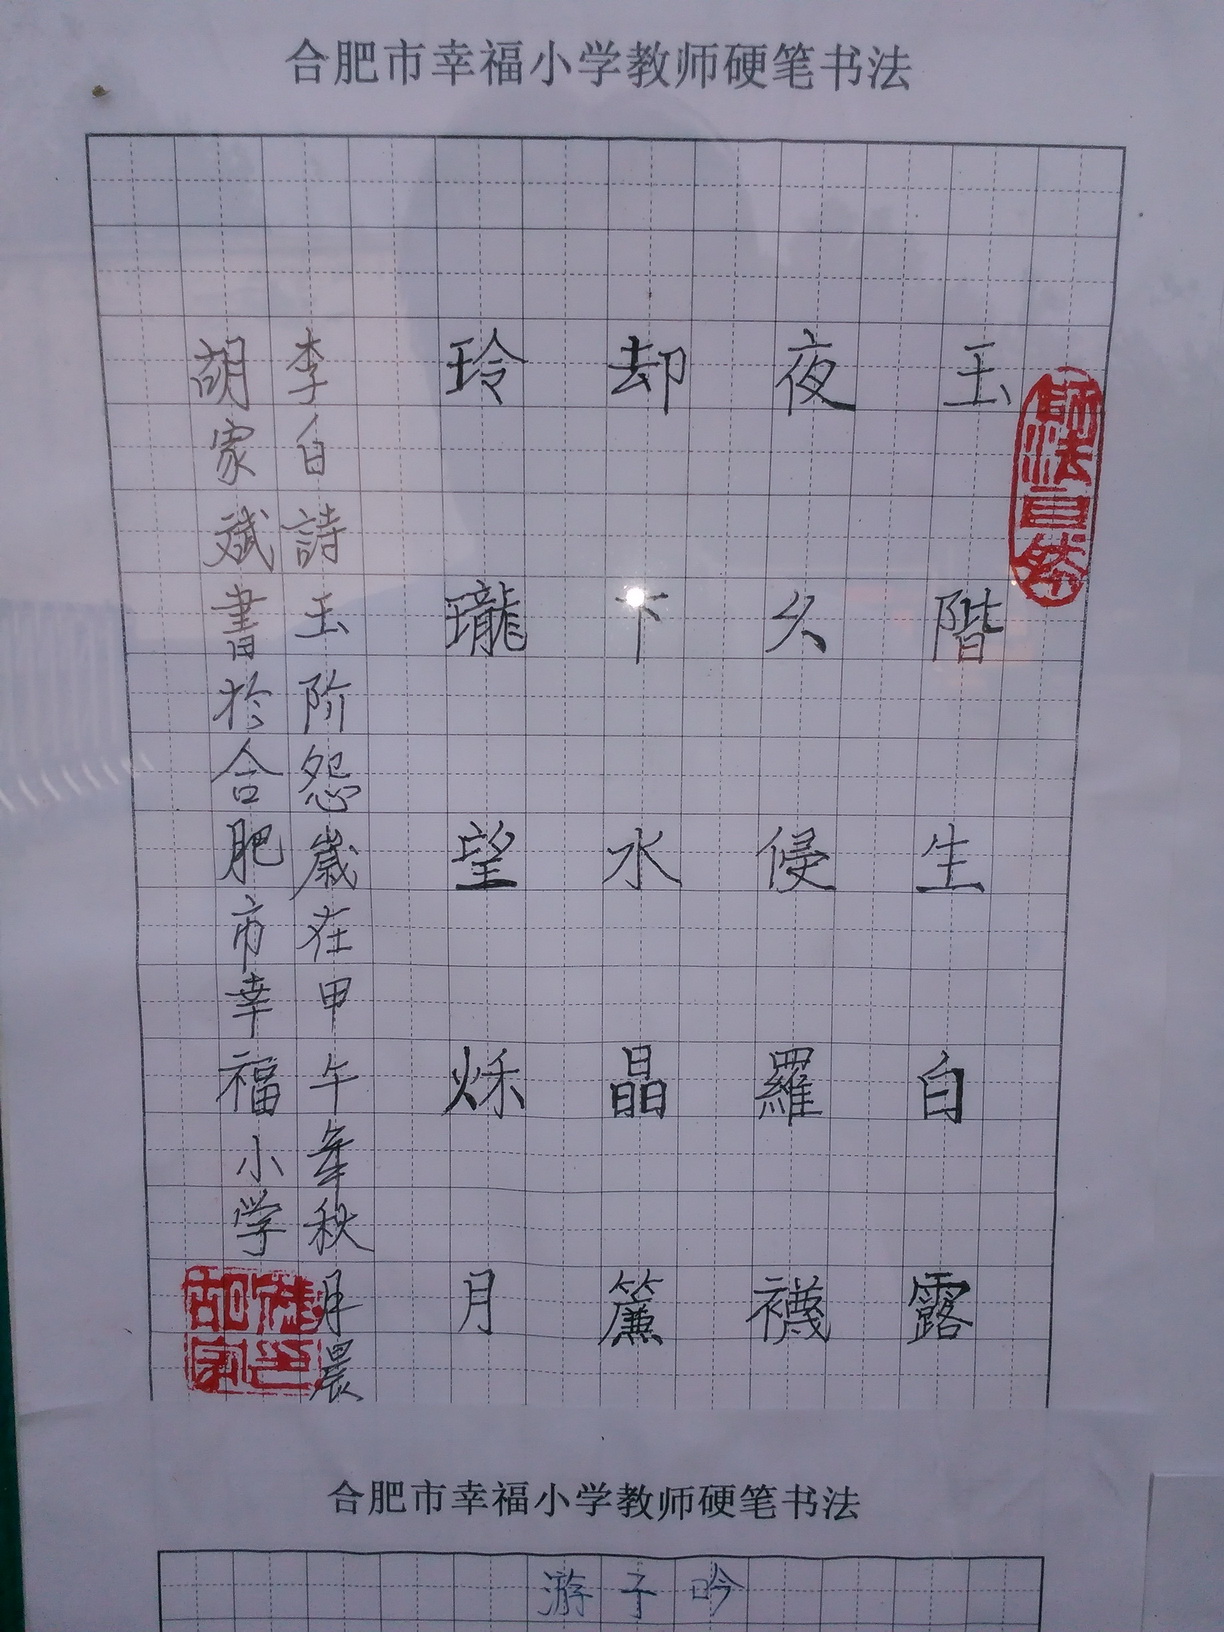 合肥市幸福小学教师硬笔书法
玉階生白露
夜久侵羅襪
却下水晶簾
玲瓏望秌月
李白詩玉阶怨歲在甲午年秋月晨
胡家斌書於合肥市幸福小学
師法自然
合肥市幸福小学教师硬笔书法
游子吟